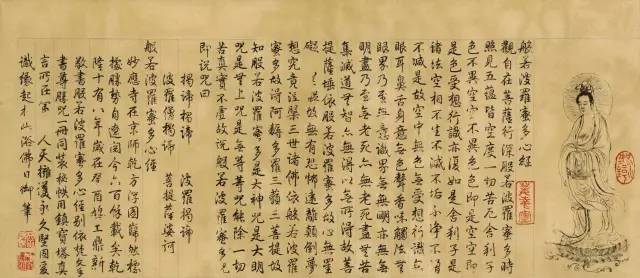 般若波羅蜜多心經
觀自在菩薩行深般若波羅蜜多時
照見五蘊皆空度一切苦厄舍利子
色不異空空不異色色即是空空即
是色受想行識亦復如是舍利子是
諸法空相不生不滅不垢不淨不增
不減是故空中無色無受想行識無
眼耳鼻舌身意無色聲香味觸法無
眼界乃至無意識界無無明亦無無
明盡乃至無老死亦無老死盡無苦
集滅道無智亦無得以無所得故菩
提薩埵依般若波羅蜜多故心無罣
礙無罣礙故無有恐怖遠離顛倒夢
想究竟涅槃三世諸佛依般若波羅
蜜多故得阿耨多羅三藐三菩提故
知般若波羅蜜多是大神咒是大明
咒是無上咒是無等等咒能除一切
苦真實不虛故說般若波羅蜜多咒
即說咒曰
揭諦揭諦 波羅揭諦
波羅僧揭諦 菩提薩婆訶
般若波羅蜜多心經
妙應寺在京師乾方浮圖巋然
標勝勢自遼閱今六百餘載矣乾
隆十有八年歲在癸酉鼎新
敬書般若波羅蜜多心經別依梵文手
書尊勝咒一冊同裝秘帙用鎮寶塔真
言所在 人天擁護永久堅固爰
識緣起 浴佛日御筆